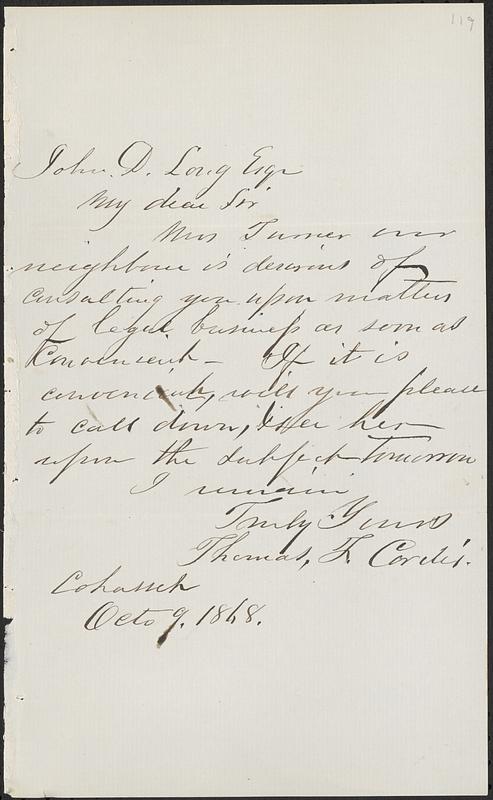 119
John. D. Long Esqr
My dear Sir
Mrs Turner our
neighbour is desirous of
consulting you upon matters
of legal business as soon as
Convenient - If it is
convenient, will you please
to call down, & see her
upon the subject tomorrow
I remain
Truly Yours
Thomas, F.
Cohasset
Octo 9. 1868.